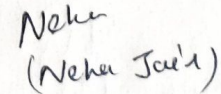 Neha
(Neha Jain)